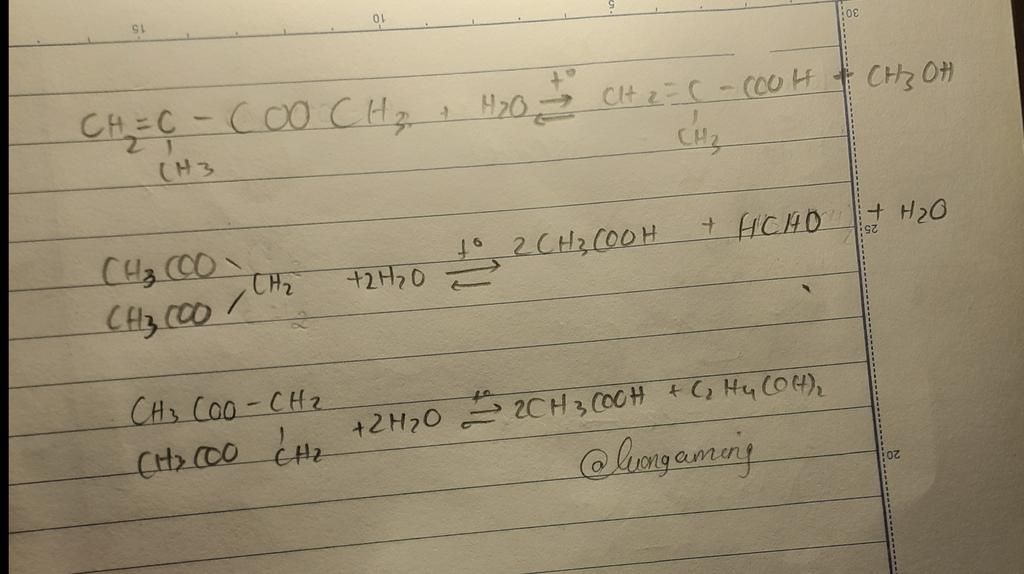 15 10 5 30
CH2=C - COOCH3 + H2O t° ⇌ CH2=C - COOH + CH3OH
CH3 CH3
CH3COO \ CH2 +2H2O t° ⇌ 2CH3COOH + HCHO + H2O
25
CH3COO /
CH3COO-CH2 +2H2O t° ⇌ 2CH3COOH + C2H4(OH)2
CH3COO CH2
@luongaming
20